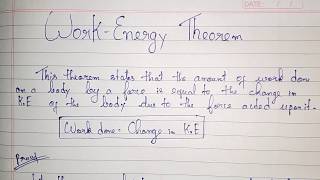 DATE: / /
Work-Energy Theorem
This theorem states that the amount of work done
on a body by a force is equal to the change in
K.E of the body due to the force acted upon it.
Work done = Change in K.E
Proved